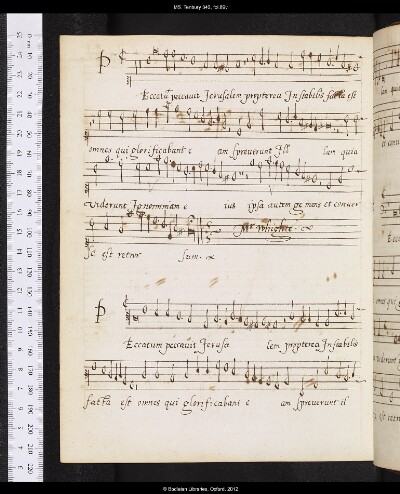 MS. Tenbury 342, fol.89v
P
Eccatū peccauit Jerusalem propterea Instabilis facta est
omnes qui glorificabant e am spreuerunt Ill lam quia
viderunt Ignominiam e ius ipsa autem ge mens et conuer
sa est retror sum
Mr Whighte
P
Eccatum peccauit Jerusa lem propterea Instabilis
facta est omnes qui glorificabant e am spreuerunt il
© Bodleian Libraries, Oxford, 2012